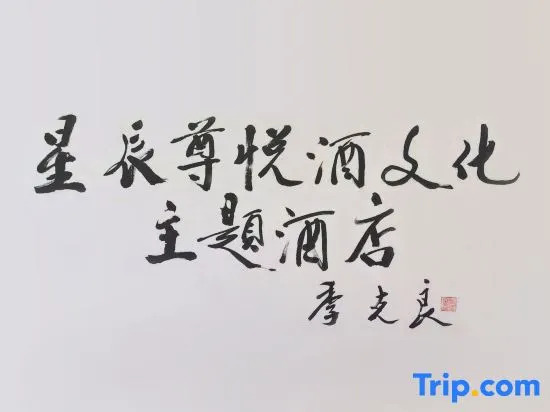 星辰尊悦酒文化
主題酒店
季克良
Trip.com